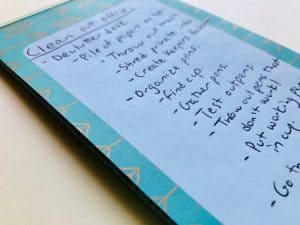 Clean out office
- Declutter desk
- Pile of papers on
- Throw out trash
- Shred private
- Create keep
- Organize pens
- Find cup
- Gather pens
- Test out pens
- Throw out pens that
don't work
- Put working
in cup
- Go